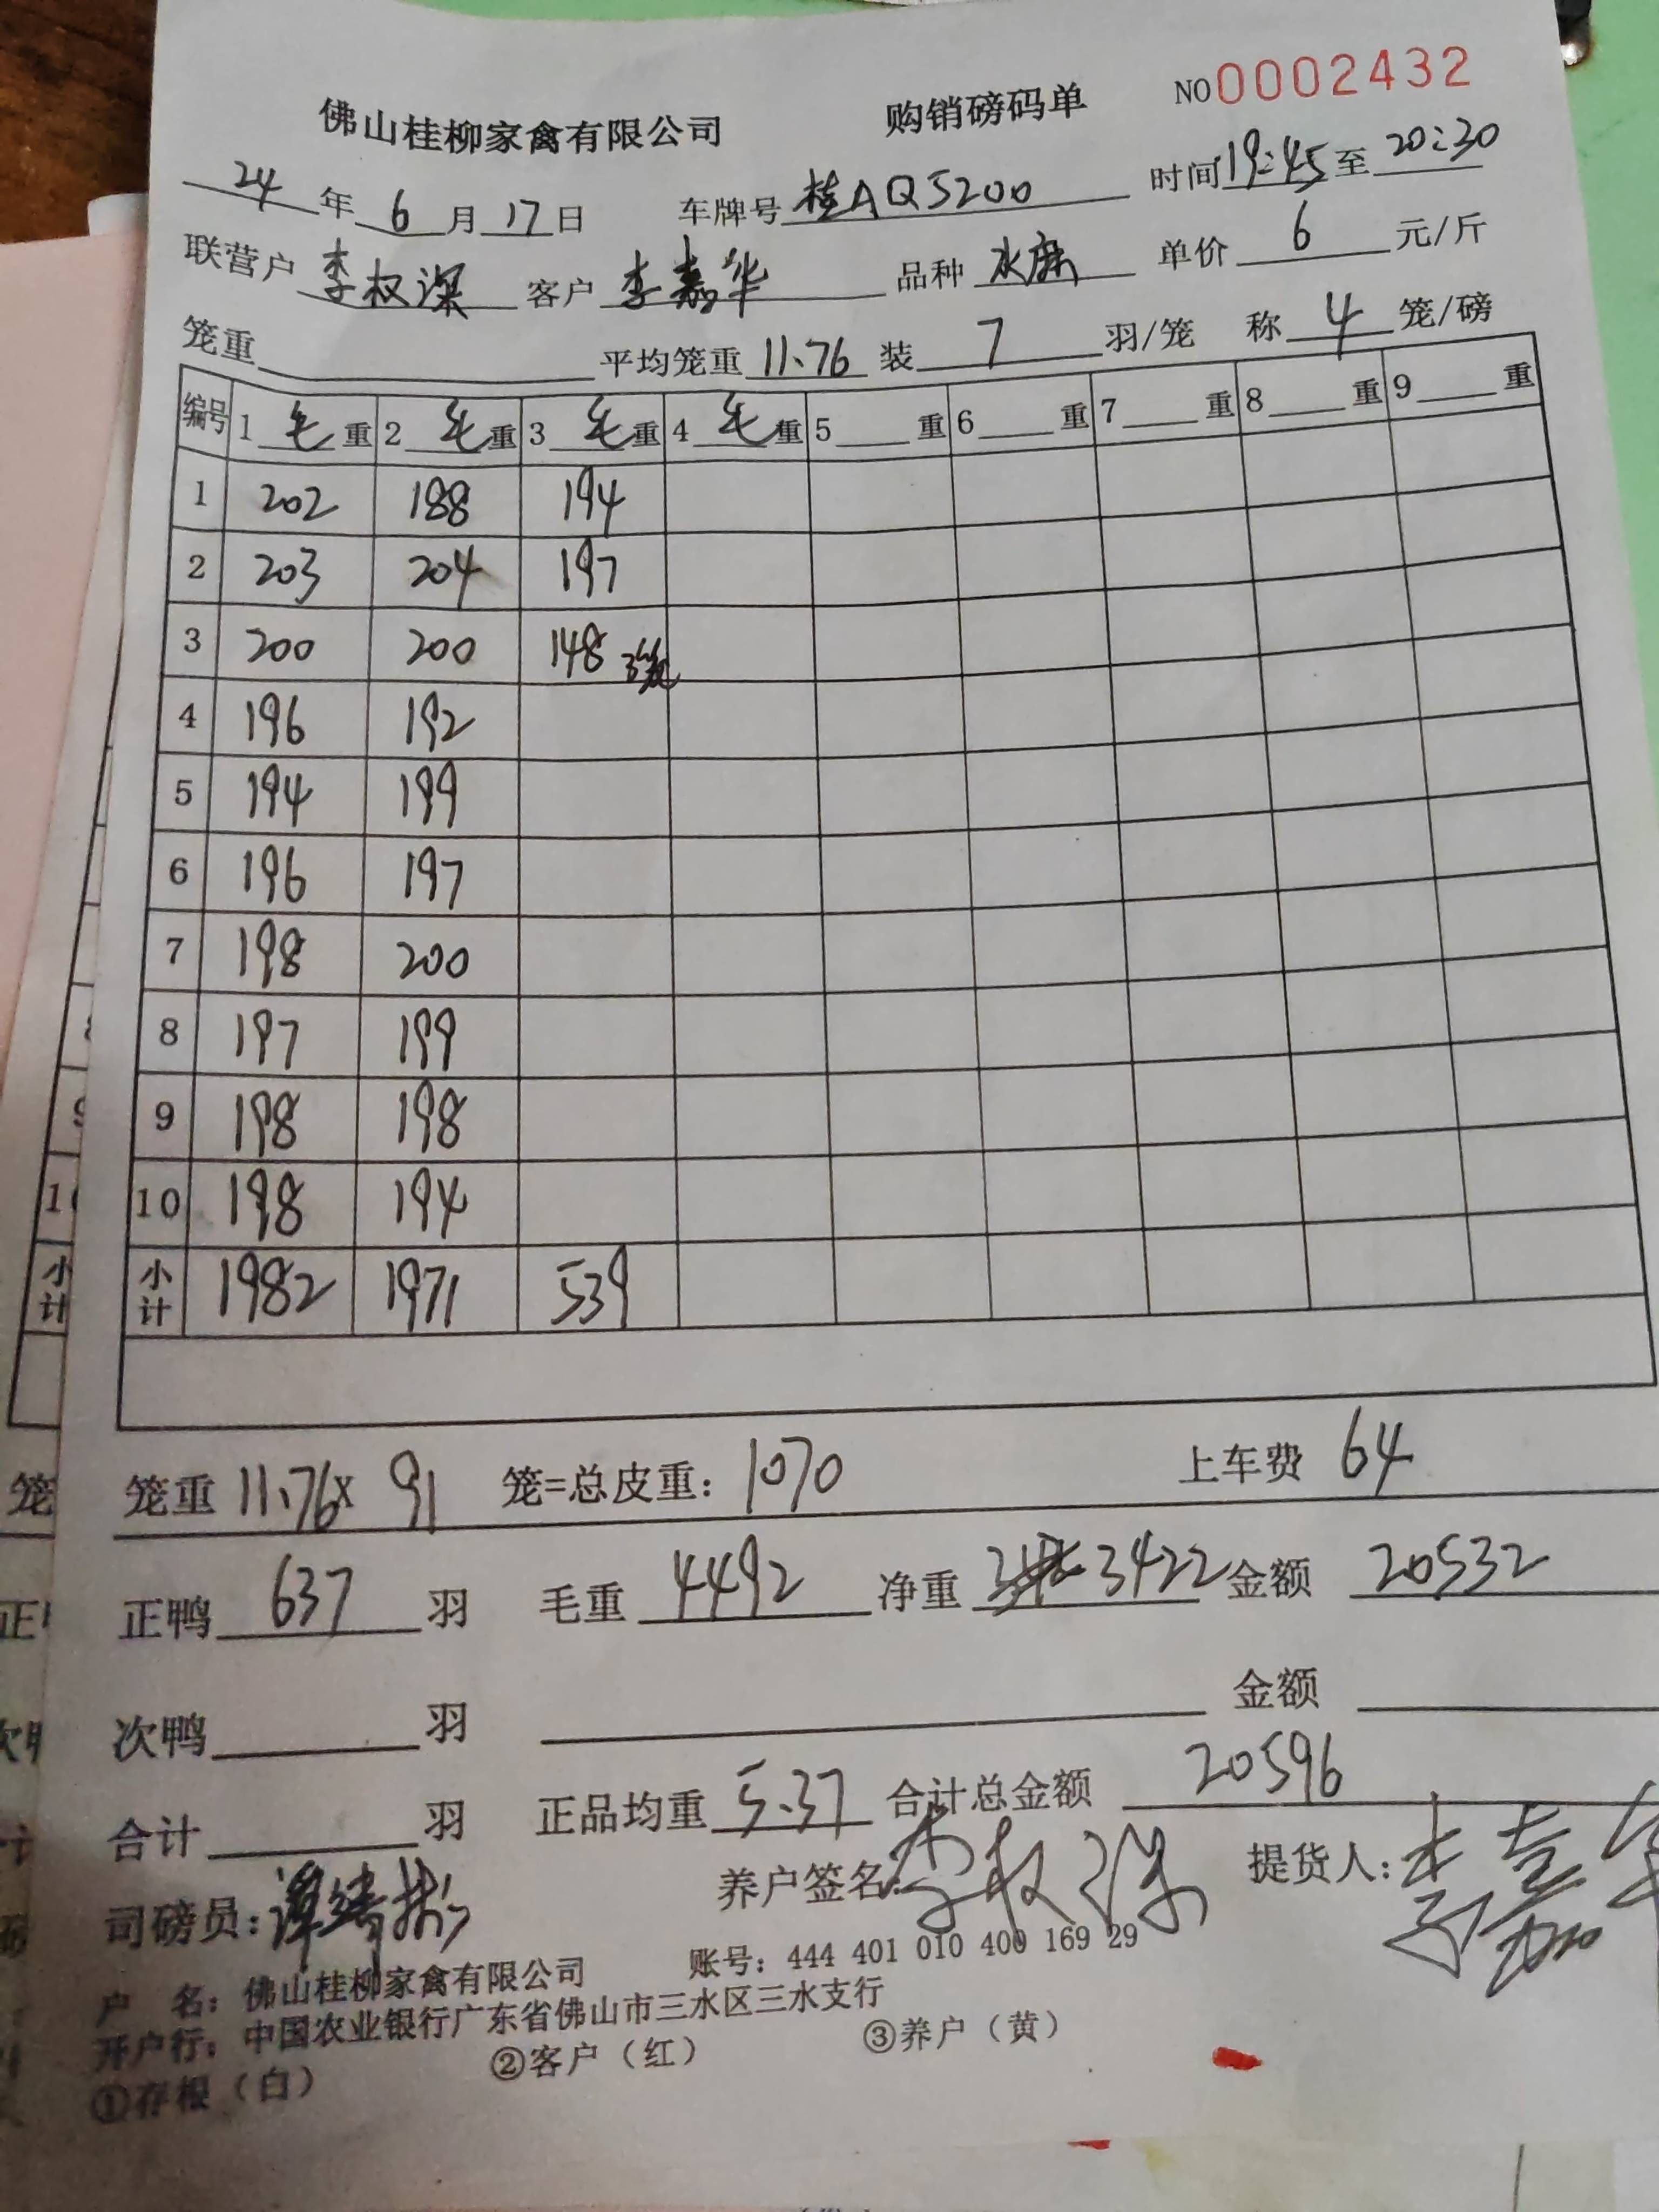 佛山桂柳家禽有限公司 购销磅码单 NO0002432
24年6月17日 车牌号 桂AQ5200 时间19:45至20:30
联营户 李权深 客户 李嘉华 品种 水麻 单价 6 元/斤
笼重 平均笼重 11.76 装 7 羽/笼 称 4 笼/磅
编号 1 毛重 2 毛重 3 毛重 4 毛重 5 重 6 重 7 重 8 重 9 重
1 202 188 194
2 203 204 197
3 200 200 148 3笼
4 196 192
5 194 199
6 196 197
7 198 200
8 197 199
9 198 198
10 198 194
小计 1982 1971 539
笼重 11.76x 91 笼=总皮重: 1070 上车费 64
正鸭 637 羽 毛重 4492 净重 3422 金额 20532
次鸭 羽 金额
合计 羽 正品均重 5.37 合计总金额 20596
司磅员: 养户签名: 李权深 提货人: 李嘉华
户 名: 佛山桂柳家禽有限公司 账号: 444 401 010 400 169 29
开户行: 中国农业银行广东省佛山市三水区三水支行
①存根（白） ②客户（红） ③养户（黄）